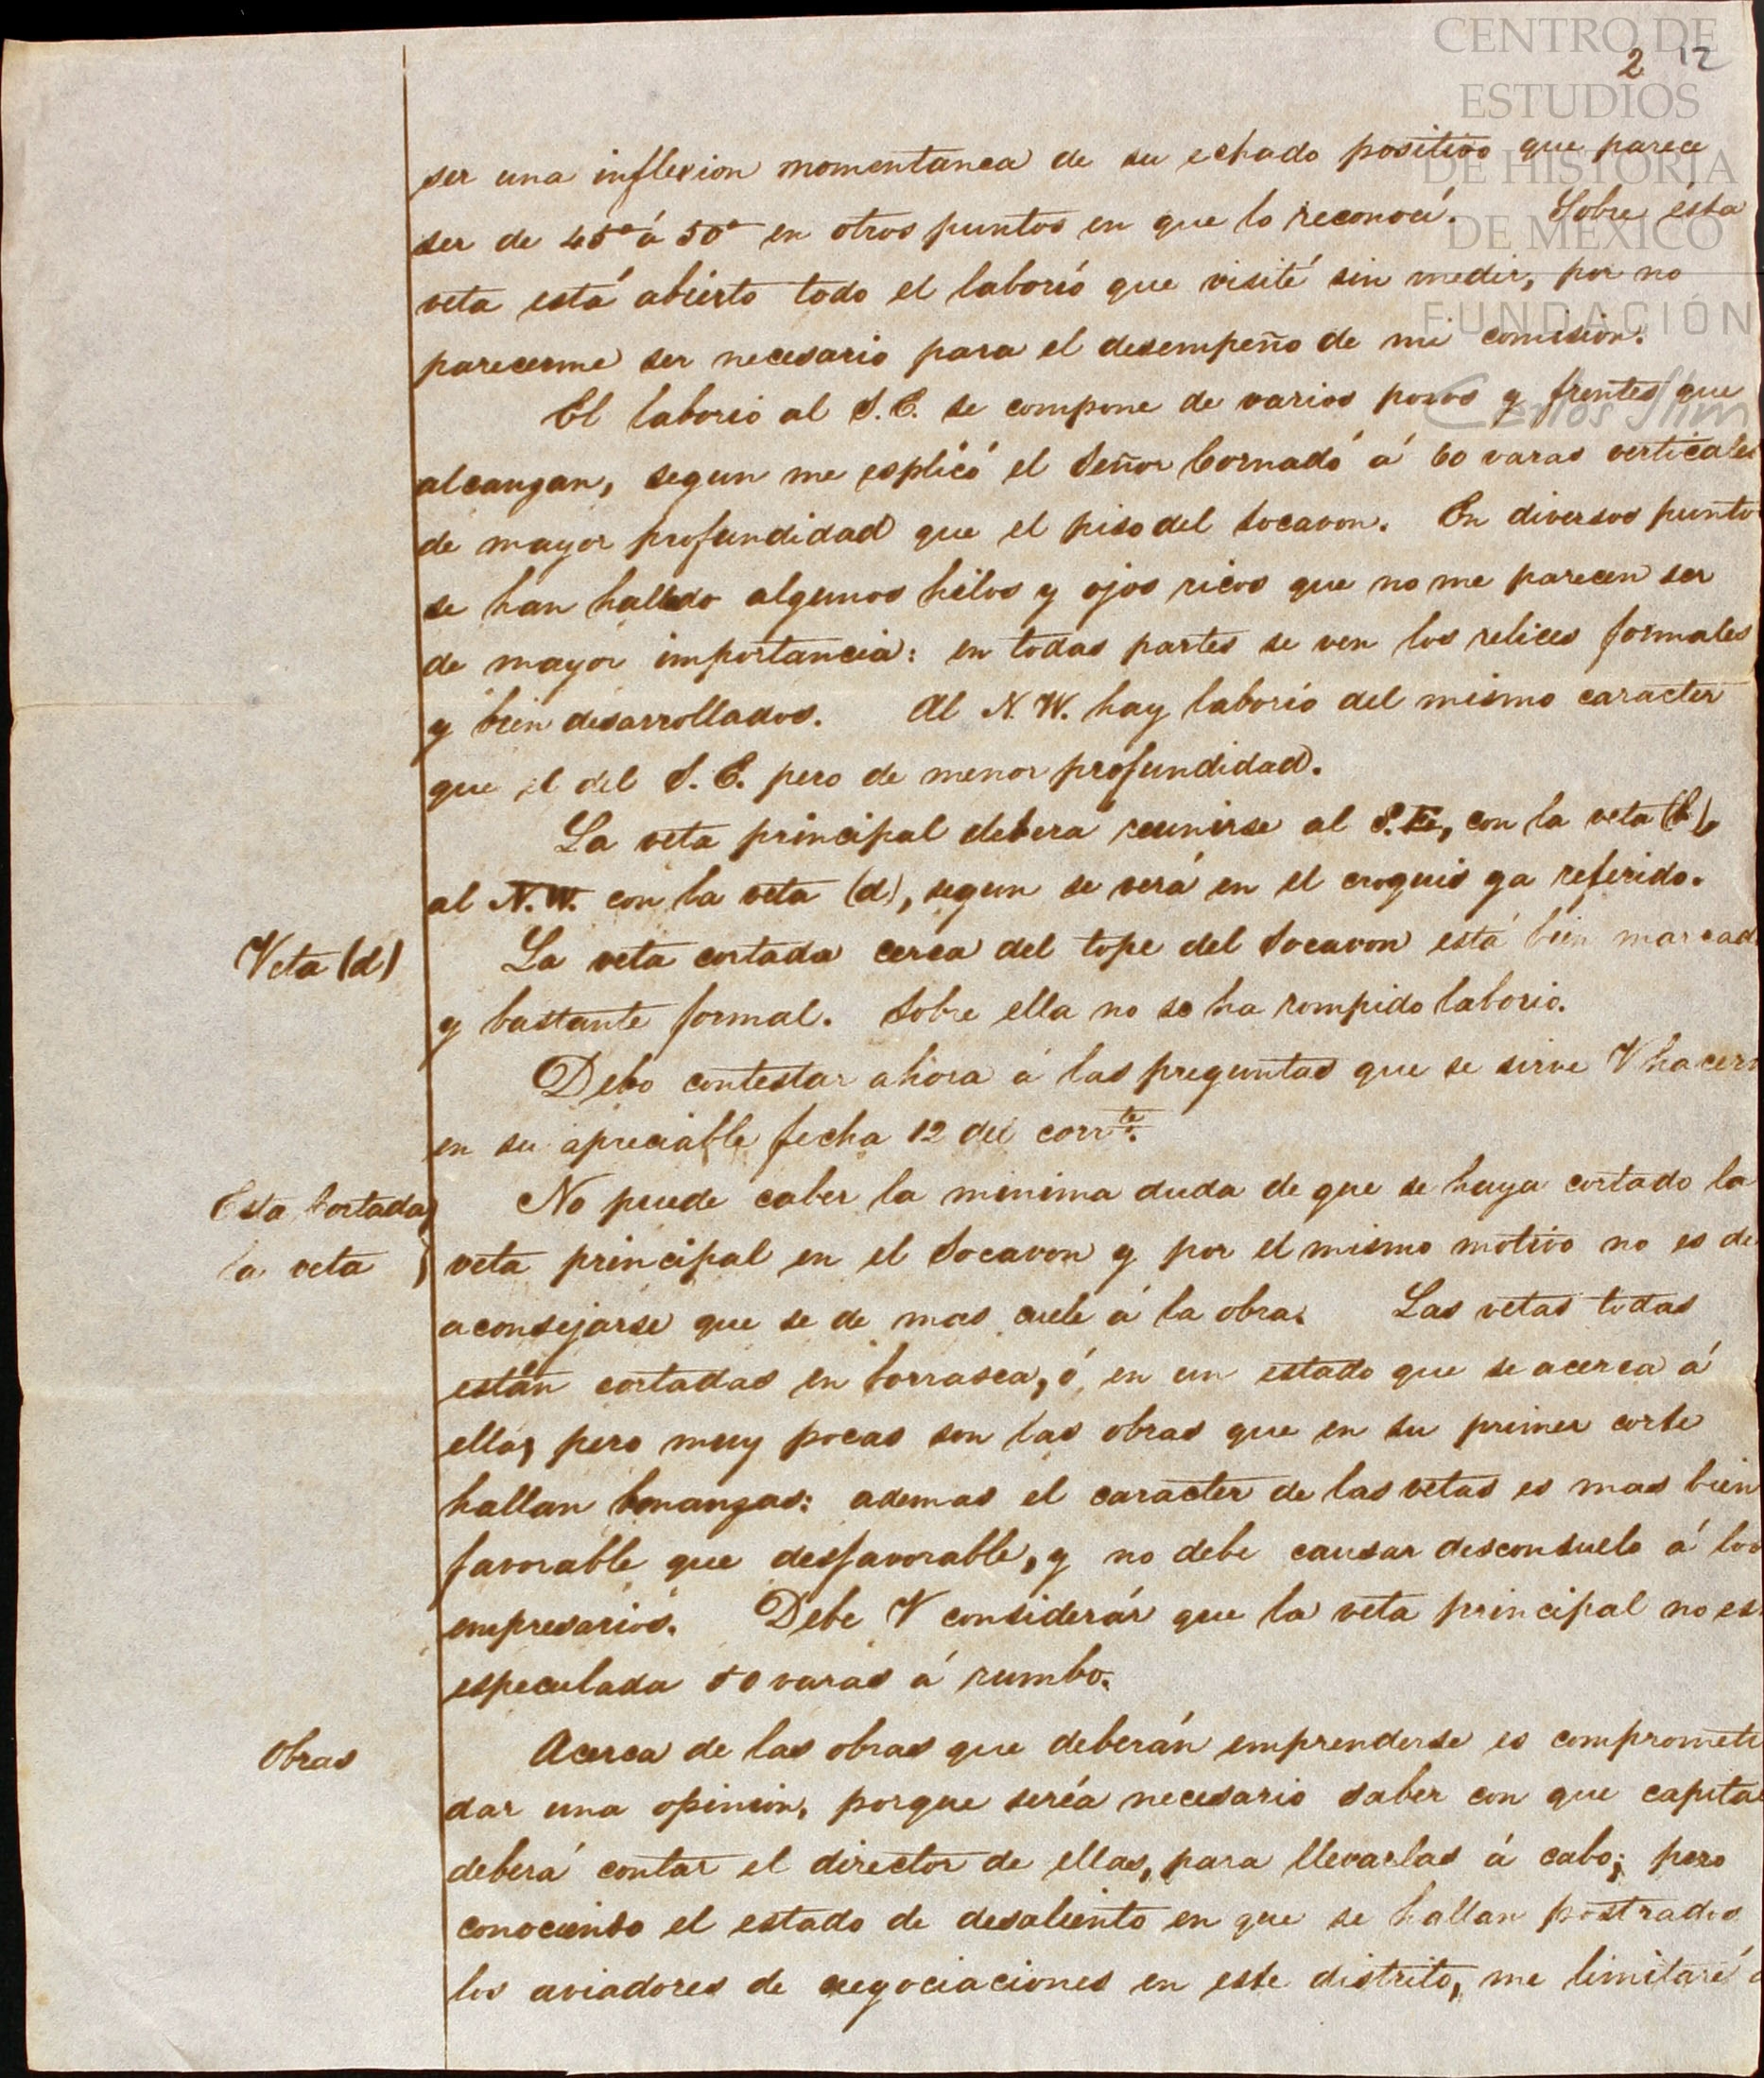 CENTRO DE
2 12
ESTUDIOS
DE HISTORIA
DE MÉXICO
FUNDACIÓN
Carlos Slim
ser una inflexion momentanea de su echado positivo que parece
ser de 45° á 50° en otros puntos en que lo reconocí. Sobre ésta
veta está abierto todo el laborío que visité sin medir, por no
parecerme ser necesario para el desempeño de mi comision.
El laborio al S.E. se compone de varios pozos y frentes que
alcanzan, segun me esplicó el Señor Cornadó á 60 varas verticales
de mayor profundidad que el piso del Socavon. En diversos punto
se han hallado algunos hilos y ojos ricos que no me parecen ser
de mayor importancia: en todas partes se ven los relices formales
y bien desarrollados. Al N.W. hay laborío del mismo caracter
que el del S.E. pero de menor profundidad.
La veta principal debera reunirse al S.E., con la veta (b),
al N.W. con la veta (d), segun se verá en el croquis ya referido.
Veta (d)
La veta cortada cerca del tope del Socavon está bien marcad
y bastante formal. Sobre ella no se ha rompido laborio.
Debo contestar ahora á las preguntas que se sirve V hacerm
en su apreciable fecha 12 del corrte.
Esta Cortada
la veta
No puede caber la minima duda de que se haya cortado la
veta principal en el Socavon y por el mismo motivo no es de
aconsejarse que se de mas cuele á la obra. Las vetas todas
están cortadas en borrasca, ó en un estado que se acerca á
ella, pero muy pocas son las obras que en su primer corte
hallan bonanzas: ademas el caracter de las vetas es mas bien
favorable que desfavorable, y no debe causar desconsuelo á los
empresarios. Debe V considerár que la veta principal no es
especulada 50 varas á rumbo.
Obras
Acerca de las obras que deberán emprenderse es comprometi
dar una opinion, porque sería necesario saber con que capital
deberá contar el director de ellas, para llevarlas á cabo; pero
conociendo el estado de desaliento en que se hallan postrados
los aviadores de negociaciones en este distrito, me limitaré á